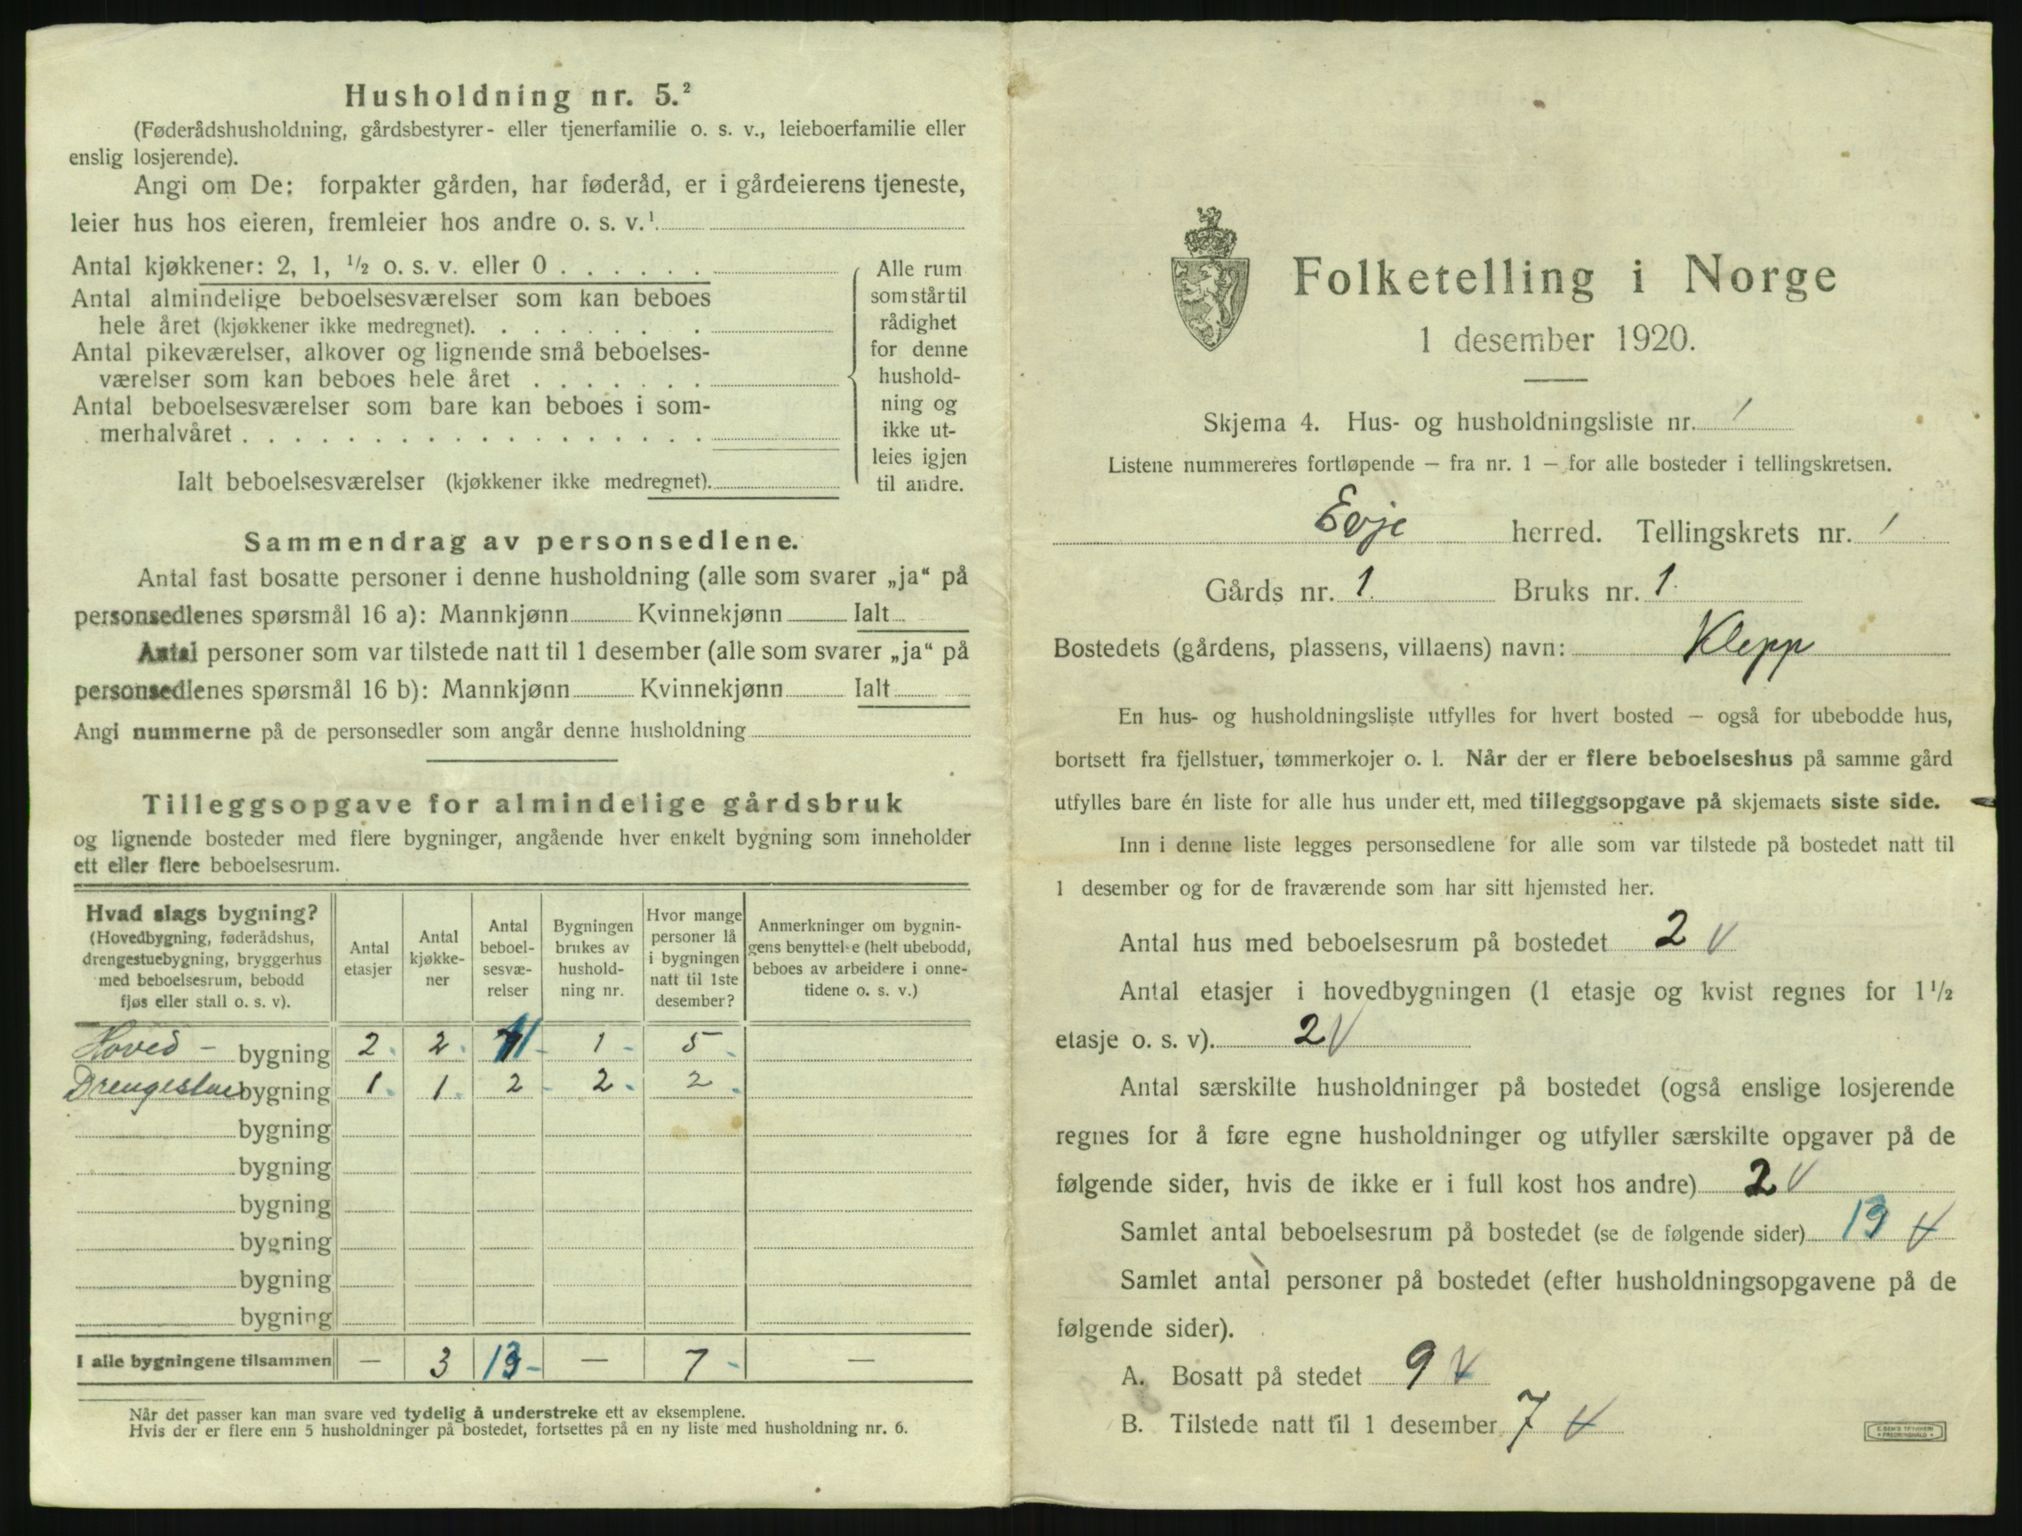 Husholdning nr. 5.²
(Føderådshusholdning, gårdsbestyrer- eller tjenerfamilie o. s. v., leieboerfamilie eller
enslig losjerende).
Angi om De: forpakter gården, har føderåd, er i gårdeierens tjeneste,
leier hus hos eieren, fremleier hos andre o. s. v.¹
Antal kjøkkener: 2, 1, ½ o. s. v. eller 0 . . . . . .
Antal almindelige beboelsesværelser som kan beboes
hele året (kjøkkener ikke medregnet). . . . . . . .
Antal pikeværelser, alkover og lignende små beboelses-
værelser som kan beboes hele året . . . . . . .
Antal beboelsesværelser som bare kan beboes i som-
merhalvåret . . . . . . . . . . . . . . . . . .
Ialt beboelsesværelser (kjøkkener ikke medregnet).
Alle rum
som står til
rådighet
for denne
hushold-
ning og
ikke ut-
leies igjen
til andre.
Sammendrag av personsedlene.
Antal fast bosatte personer i denne husholdning (alle som svarer „ja“ på
personsedlenes spørsmål 16 a): Mannkjønn Kvinnekjønn Ialt
Antal personer som var tilstede natt til 1 desember (alle som svarer „ja“ på
personsedlenes spørsmål 16 b): Mannkjønn Kvinnekjønn Ialt
Angi nummerne på de personsedler som angår denne husholdning
Tilleggsopgave for almindelige gårdsbruk
og lignende bosteder med flere bygninger, angående hver enkelt bygning som inneholder
ett eller flere beboelsesrum.
Hvad slags bygning?
(Hovedbygning, føderådshus,
drengestuebygning, bryggerhus
med beboelsesrum, bebodd
fjøs eller stall o. s. v).
Antal
etasjer
Antal
kjøkke-
ner
Antal
beboel-
sesvæ-
relser
Bygningen
brukes av
hushold-
ning nr.
Hvor mange
personer lå
i bygningen
natt til 1ste
desember?
Anmerkninger om bygnin-
gens benyttelse (helt ubebodd,
beboes av arbeidere i onne-
tidene o. s. v.)
Hoved - bygning 2 2 11 1 5
Drengestue bygning 1 1 2 2 2
bygning
bygning
bygning
bygning
bygning
bygning
I alle bygningene tilsammen — 3 13 — 7 —
Når det passer kan man svare ved tydelig å understreke ett av eksemplene.
Hvis der er flere enn 5 husholdninger på bostedet, fortsettes på en ny liste med husholdning nr. 6.
Folketelling i Norge
1 desember 1920.
Skjema 4. Hus- og husholdningsliste nr. 1
Listene nummereres fortløpende – fra nr. 1 – for alle bosteder i tellingskretsen.
Evje herred. Tellingskrets nr. 1
Gårds nr. 1 Bruks nr. 1
Bostedets (gårdens, plassens, villaens) navn: Klepp
En hus- og husholdningsliste utfylles for hvert bosted – også for ubebodde hus,
bortsett fra fjellstuer, tømmerkojer o. l. Når der er flere beboelseshus på samme gård
utfylles bare én liste for alle hus under ett, med tilleggsopgave på skjemaets siste side.
Inn i denne liste legges personsedlene for alle som var tilstede på bostedet natt til
1 desember og for de fraværende som har sitt hjemsted her.
Antal hus med beboelsesrum på bostedet 2
Antal etasjer i hovedbygningen (1 etasje og kvist regnes for 1½
etasje o. s. v). 2
Antal særskilte husholdninger på bostedet (også enslige losjerende
regnes for å føre egne husholdninger og utfyller særskilte opgaver på de
følgende sider, hvis de ikke er i full kost hos andre) 2
Samlet antal beboelsesrum på bostedet (se de følgende sider) 13
Samlet antal personer på bostedet (efter husholdningsopgavene på de
følgende sider).
A. Bosatt på stedet 9
B. Tilstede natt til 1 desember 7